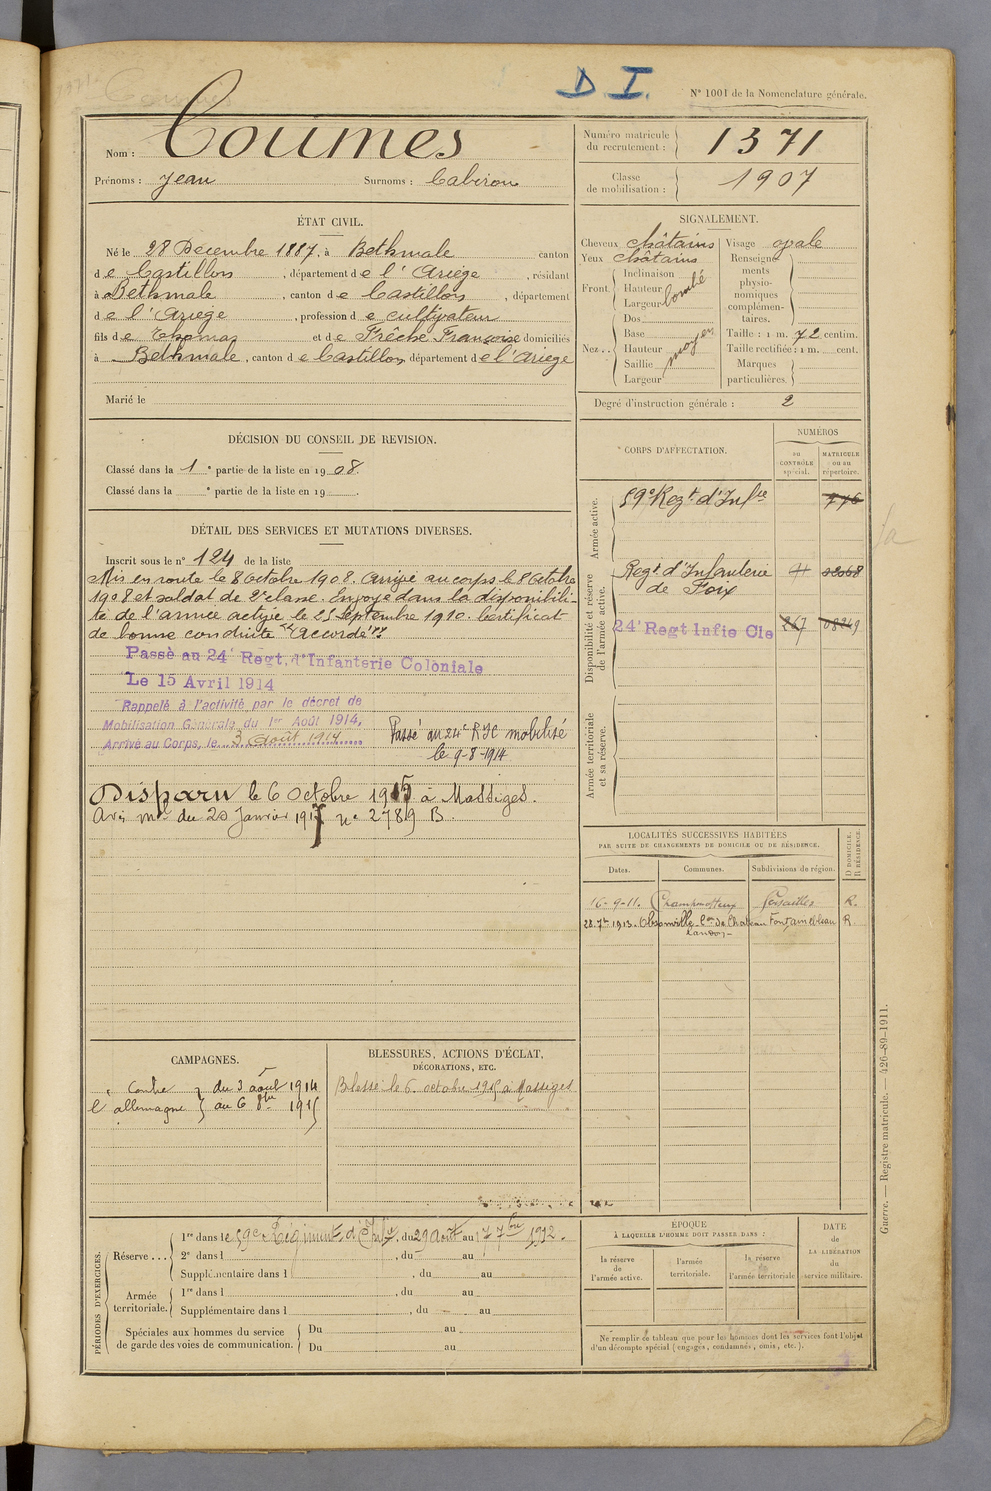 D. I.
N° 1001 de la Nomenclature générale.
Nom : Coumes
Prénoms : Jean Surnoms : Cabirou
Numéro matricule du recrutement : 1371
Classe de mobilisation : 1907
ÉTAT CIVIL.
Né le 28 Décembre 1887, à Bethmale canton
de Castillon, département de l'Ariège, résidant
à Bethmale, canton de Castillon, département
de l'Ariège, profession de cultivateur
fils de Thomas et de Frêche Françoise domiciliés
à Bethmale, canton de Castillon département de l'Ariège
Marié le
SIGNALEMENT.
Cheveux châtains
Yeux châtains
Front. Inclinaison
Hauteur bombé
Largeur
Nez .. Dos
Base
Hauteur moyen
Saillie
Largeur
Visage ovale
Renseignements physionomiques complémentaires.
Taille : 1 m. 72 centim.
Taille rectifiée : 1 m. cent.
Marques particulières.
Degré d'instruction générale : 2
DÉCISION DU CONSEIL DE REVISION.
Classé dans la 1e partie de la liste en 1908.
Classé dans la e partie de la liste en 19 .
DÉTAIL DES SERVICES ET MUTATIONS DIVERSES.
Inscrit sous le n° 124 de la liste
Mis en route le 8 Octobre 1908. Arrivé au corps le 8 Octobre
1908 et soldat de 2e classe. Envoyé dans la disponibili-
té de l'armée active le 25 Septembre 1910. Certificat
de bonne conduite "Accordé"
Passé au 24e Regt. d'Infanterie Coloniale
Le 15 Avril 1914
Rappelé à l'activité par le décret de
Mobilisation Générale du 1er Août 1914,
Arrivé au Corps, le 3 Août 1914
Passé au 24e RIC mobilisé
le 9-8-1914
Disparu le 6 Octobre 1915 à Massiges.
Avis mel du 20 Janvier 1917 n° 2789 B.
CORPS D'AFFECTATION.
NUMÉROS
au CONTRÔLE spécial.
MATRICULE ou au répertoire.
Armée active.
59e Regt d'Infie 776
Disponibilité et réserve de l'armée active.
Regt d'Infanterie de Foix
24e Regt Infie Cle 267
Armée territoriale et sa réserve.
LOCALITÉS SUCCESSIVES HABITÉES
PAR SUITE DE CHANGEMENTS DE DOMICILE OU DE RÉSIDENCE.
Dates. Communes. Subdivisions de région. D DOMICILE. R RÉSIDENCE.
16-9-11. Champmotteux Versailles R.
28.7bre 1913. Obsonville con de Chateau Landon Fontainebleau R
CAMPAGNES.
Contre l'allemagne du 3 août 1914
au 6 8bre 1915
BLESSURES, ACTIONS D'ÉCLAT,
DÉCORATIONS, ETC.
Blessé le 6 octobre 1915 à Massiges
PÉRIODES D'EXERCICES.
Réserve ... 1re dans le 59e Régiment d'Infie, du 29 Août au 17 7bre 1912.
2e dans l , du au
Supplémentaire dans l , du au
Armée territoriale. 1re dans l , du au
Supplémentaire dans l , du au
Spéciales aux hommes du service de garde des voies de communication. Du au
Du au
ÉPOQUE
À LAQUELLE L'HOMME DOIT PASSER DANS :
la réserve de l'armée active.
l'armée territoriale.
la réserve de l'armée territoriale
DATE de LA LIBÉRATION du service militaire.
Ne remplir ce tableau que pour les hommes dont les services font l'objet
d'un décompte spécial (engagés, condamnés, omis, etc.).
Guerre. — Registre matricule. — 426-89-1911.